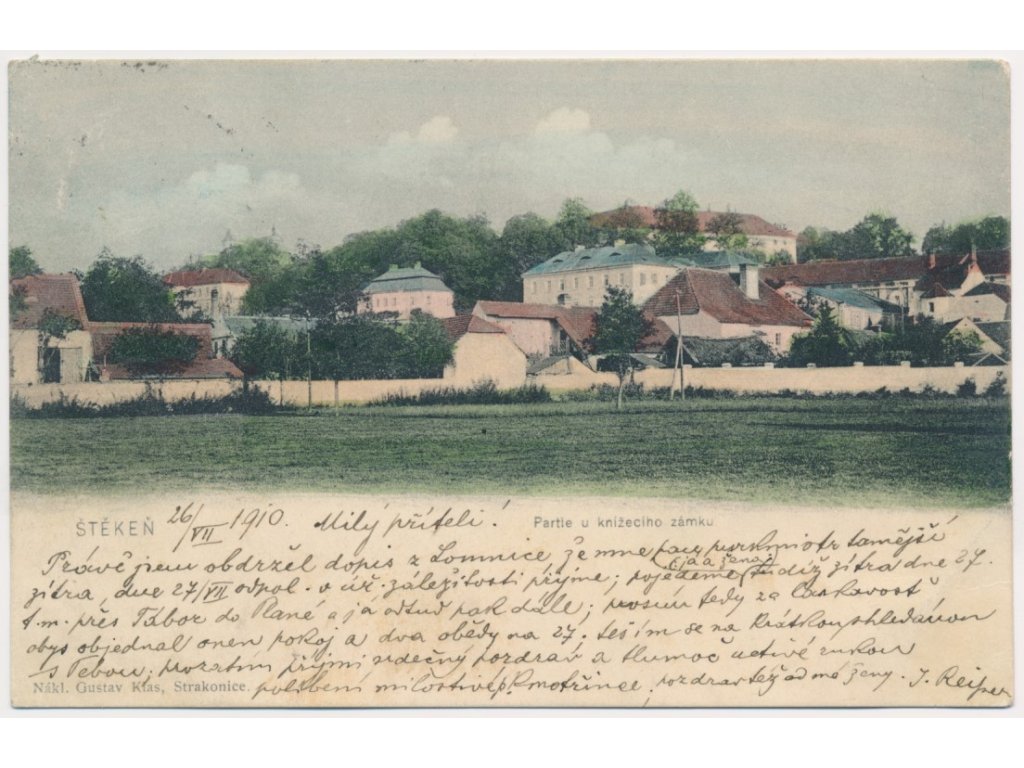 ŠTĚKEŇ 26/VII 1910. Milý příteli! Partie u knížecího zámku
Právě jsem obdržel dopis z Lomnice že mne pan purkmistr tamější
(já a žena)
zítra, dne 27/VII odpol. v úř. záležitosti přijme; pojedeme tudíž zítra dne 27.
t.m. přes Tábor do Plané a já odtud pak dále; prosím tedy za laskavost,
abys objednal onen pokoj a dva obědy na 27. těším se na krátkou shledanou
s Tebou; prozatím přijmi srdečný pozdrav a tlumoč uctivé rukou
Nákl. Gustav Klas, Strakonice. políbení milostivé p. kmotřince, pozdrav též od mé ženy. J.